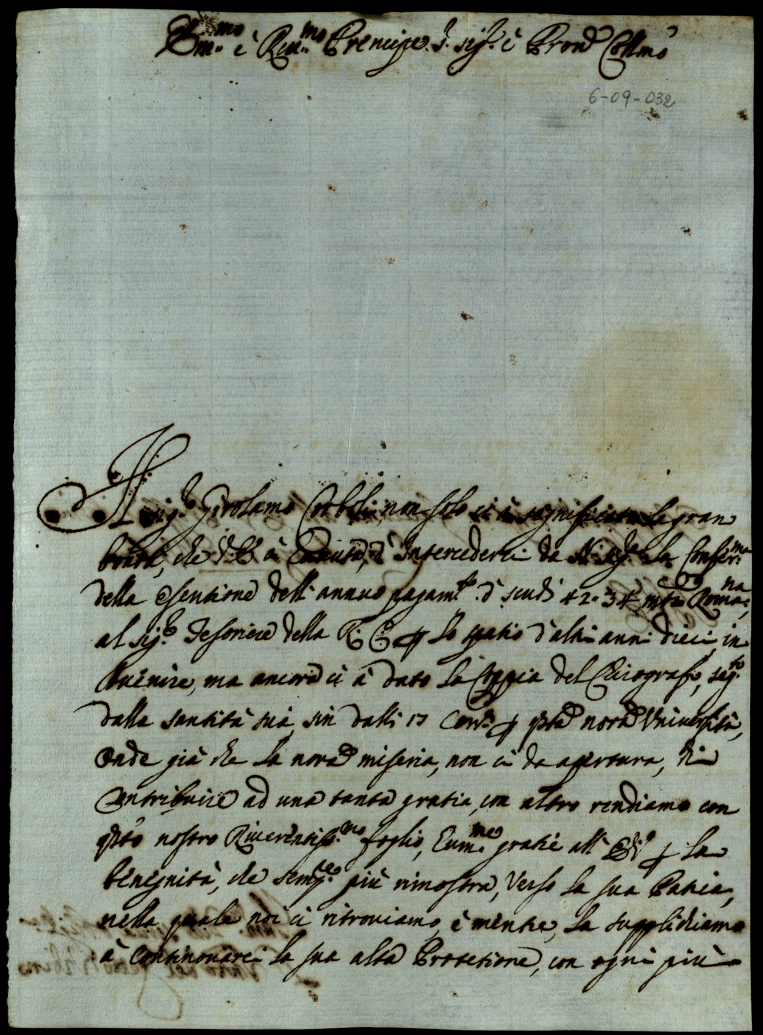 Em.mo è Rev.mo Prencipe S. Sig.r è Pron.e Coll.mo
6-09-032
Il Sig.r Girolamo non solo ci à significato la gran
bontà, che V.E. à d'Intercederci da N. Sig.re la Conferma
della esentione dell'annuo pagam.to di scudi 42:34 m.ta Romana,
al Sig.r Tesoriere della R. C. p lo spatio d'altri anni dieci in
avvenire, ma ancora ci à dato la Coppia del Chirografo, seg.to
dalla santità sua sin dalli 17 Corr.e p q.sta nora Università,
onde già che la nora miseria, non ci da apertura, di
Contribuire ad una tanta gratia, con altro rendiamo con
q.sto nostro Riverentiss.mo foglio, hum.me gratie all' p la
benegnità, che semp.e più rimostra, verso la sua Patria,
nella quale noi ci ritroviamo, è mentre, la supplichiamo
à continovarci la sua alta Protetione, con ogni più